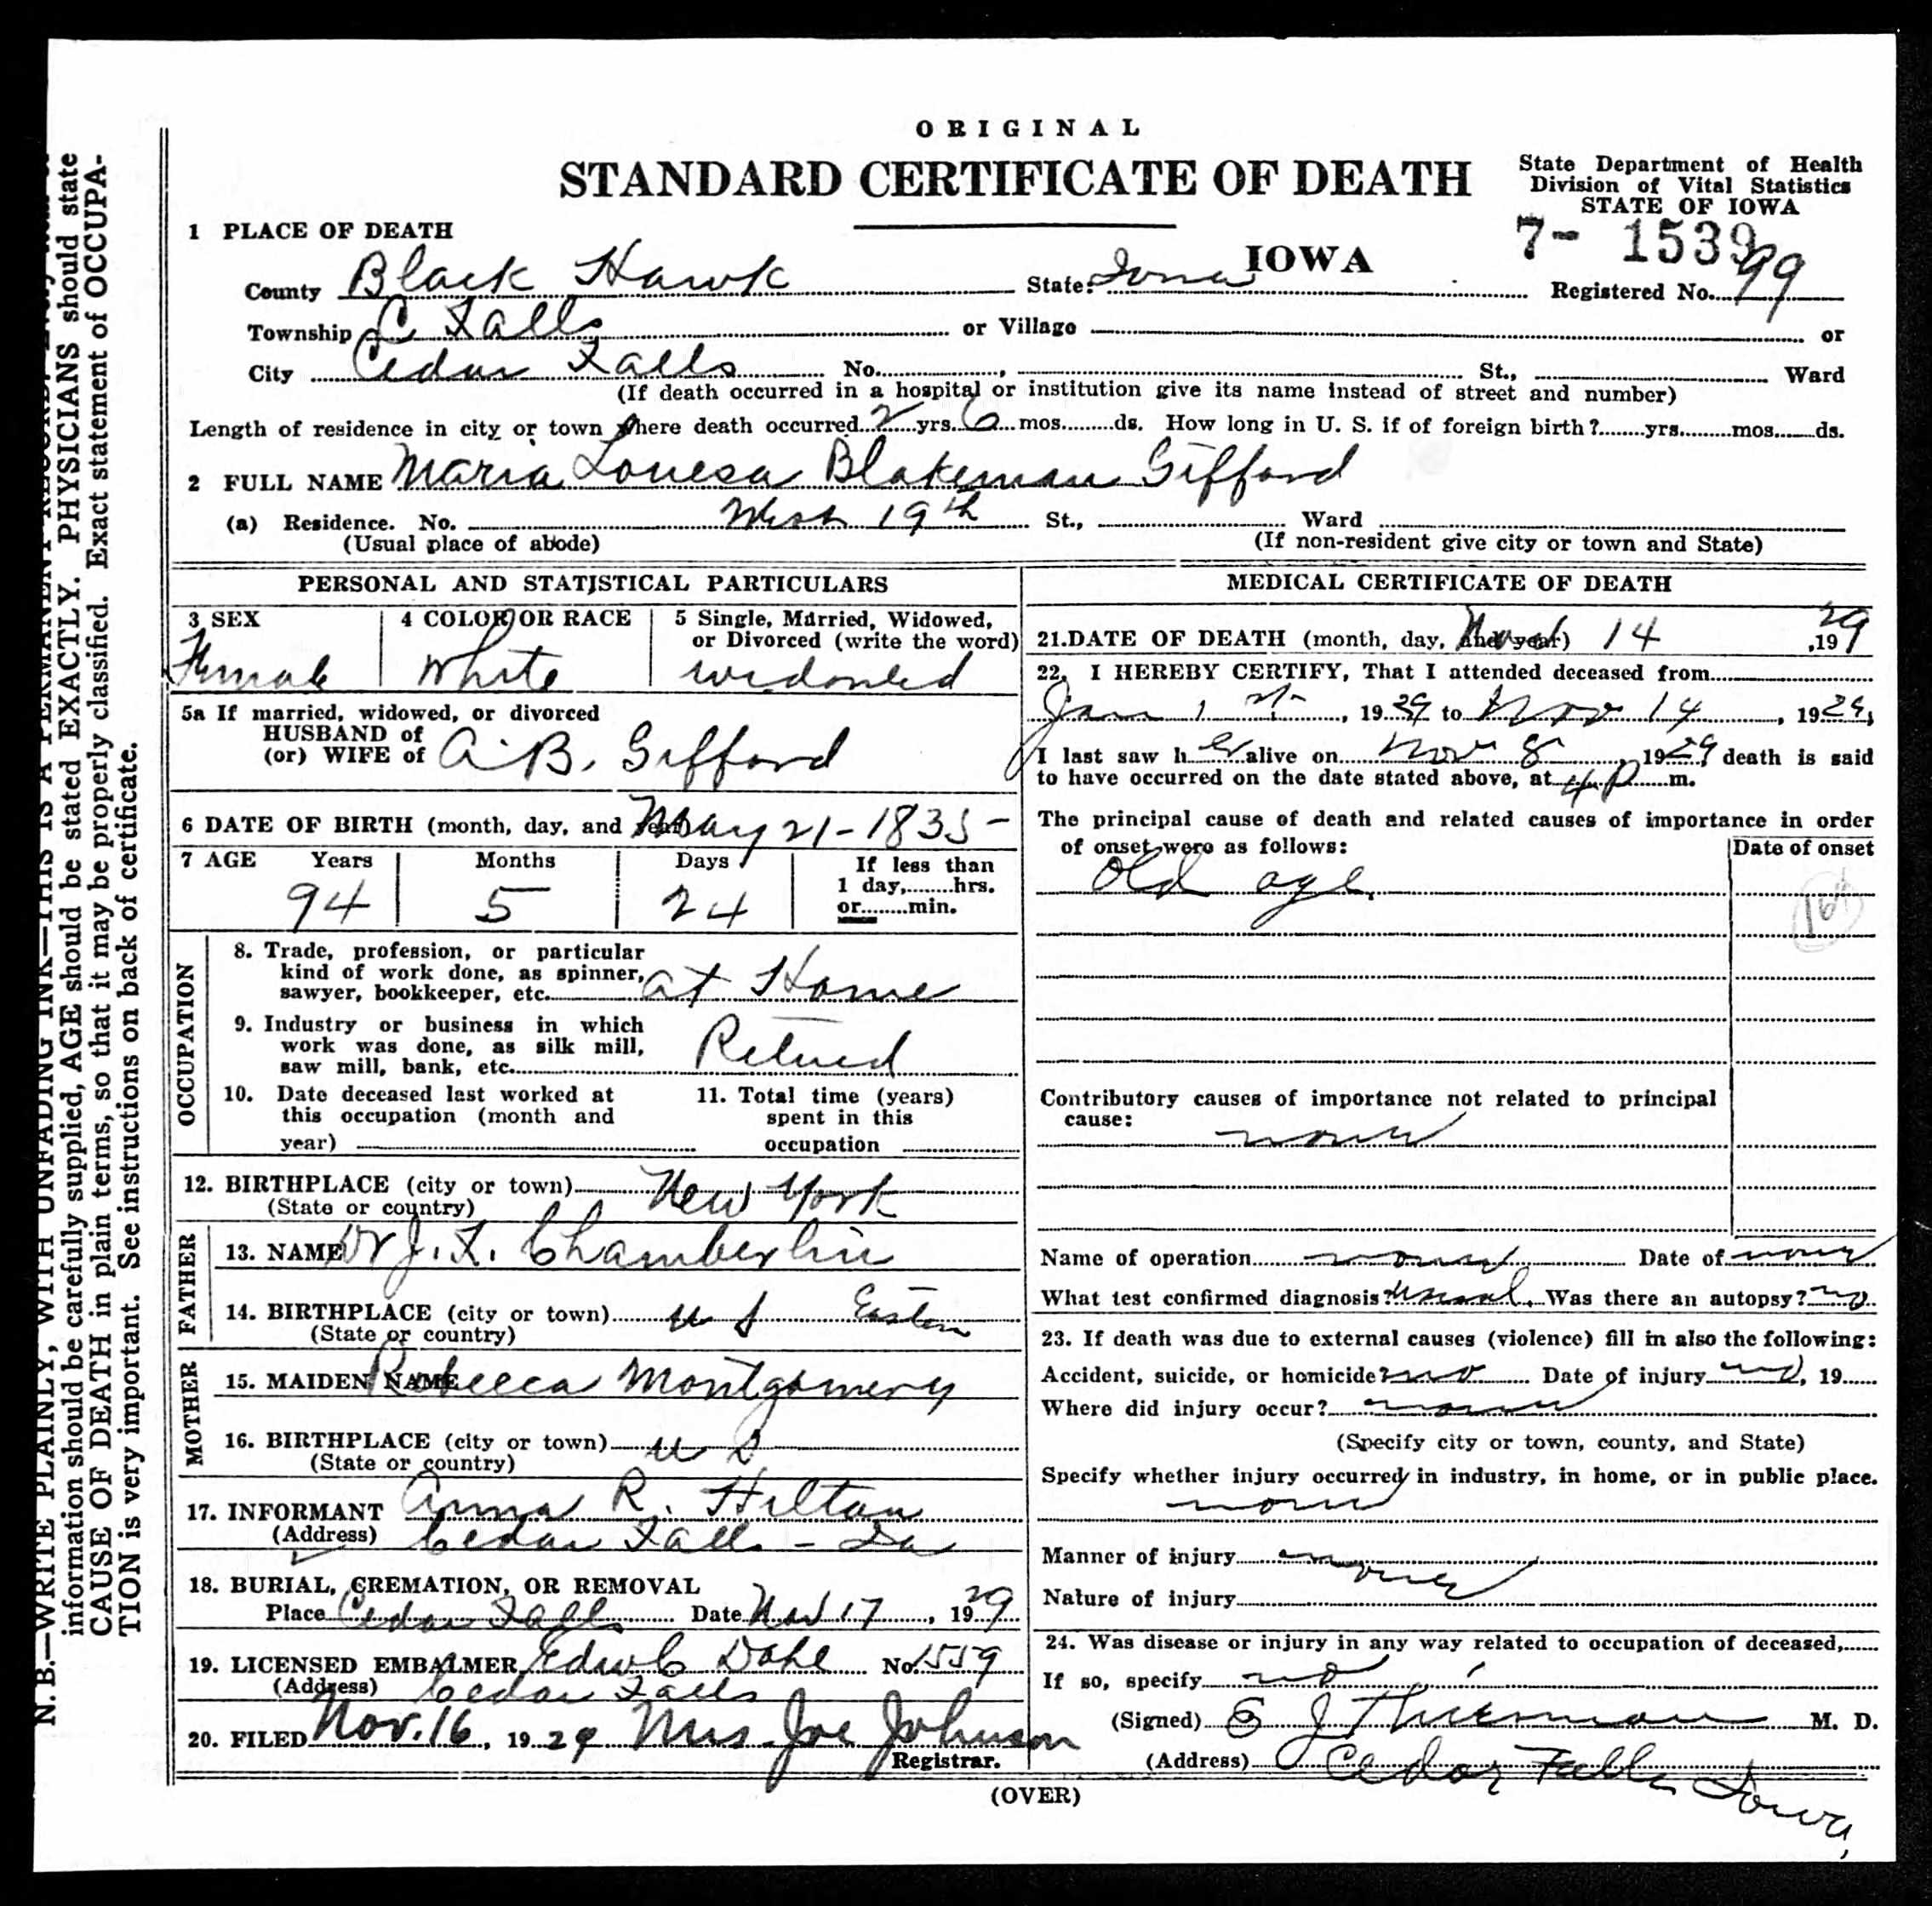 ORIGINAL
STANDARD CERTIFICATE OF DEATH
State Department of Health
Division of Vital Statistics
STATE OF IOWA
7- 1539
1 PLACE OF DEATH
IOWA
County Black Hawk State Iowa Registered No. 99
Township C Falls or Village or
City Cedar Falls No. , St., Ward
(If death occurred in a hospital or institution give its name instead of street and number)
Length of residence in city or town where death occurred 2 yrs. 6 mos. ds. How long in U. S. if of foreign birth? yrs. mos. ds.
2 FULL NAME Maria Louesa Blakeman Gifford
(a) Residence. No. West 19th St., Ward
(Usual place of abode) (If non-resident give city or town and State)
PERSONAL AND STATISTICAL PARTICULARS
3 SEX 4 COLOR OR RACE 5 Single, Married, Widowed,
or Divorced (write the word)
Female White widowed
5a If married, widowed, or divorced
HUSBAND of
(or) WIFE of A. B. Gifford
6 DATE OF BIRTH (month, day, and year) May 21 - 1835 -
7 AGE Years Months Days If less than
1 day, hrs.
or min.
94 5 24
OCCUPATION
8. Trade, profession, or particular
kind of work done, as spinner,
sawyer, bookkeeper, etc. at Home
9. Industry or business in which
work was done, as silk mill,
saw mill, bank, etc. Retired
10. Date deceased last worked at
this occupation (month and
year)
11. Total time (years)
spent in this
occupation
12. BIRTHPLACE (city or town) New York
(State or country)
FATHER
13. NAME Dr J. F. Chamberlin
14. BIRTHPLACE (city or town) U S Eastern
(State or country)
MOTHER
15. MAIDEN NAME Rebecca Montgomery
16. BIRTHPLACE (city or town) U S
(State or country)
17. INFORMANT Anna R. Hilton
(Address) Cedar Falls - Ia
18. BURIAL, CREMATION, OR REMOVAL
Place Cedar Falls Date Nov 17, 1929
19. LICENSED EMBALMER Edw C Dahl No. 1559
(Address) Cedar Falls
20. FILED Nov. 16, 1929 Mrs. Joe Johnson
Registrar.
MEDICAL CERTIFICATE OF DEATH
21. DATE OF DEATH (month, day, and year) Nov 14, 1929
22. I HEREBY CERTIFY, That I attended deceased from
Jan 1st, 1929 to Nov 14, 1929,
I last saw her alive on Nov 8, 1929, death is said
to have occurred on the date stated above, at 4 P m.
The principal cause of death and related causes of importance in order
of onset were as follows: Date of onset
Old age.
Contributory causes of importance not related to principal
cause:
none
Name of operation none Date of none
What test confirmed diagnosis? Usual. Was there an autopsy? no
23. If death was due to external causes (violence) fill in also the following:
Accident, suicide, or homicide? no Date of injury no, 19
Where did injury occur? none
(Specify city or town, county, and State)
Specify whether injury occurred in industry, in home, or in public place.
none
Manner of injury none
Nature of injury
24. Was disease or injury in any way related to occupation of deceased,
If so, specify no
(Signed) E J Thierman M. D.
(Address) Cedar Falls Iowa,
(OVER)
N. B.—WRITE PLAINLY, WITH UNFADING INK—THIS IS A PERMANENT RECORD.
information should be carefully supplied, AGE should be stated EXACTLY. PHYSICIANS should state
CAUSE OF DEATH in plain terms, so that it may be properly classified. Exact statement of OCCUPA-
TION is very important. See instructions on back of certificate.